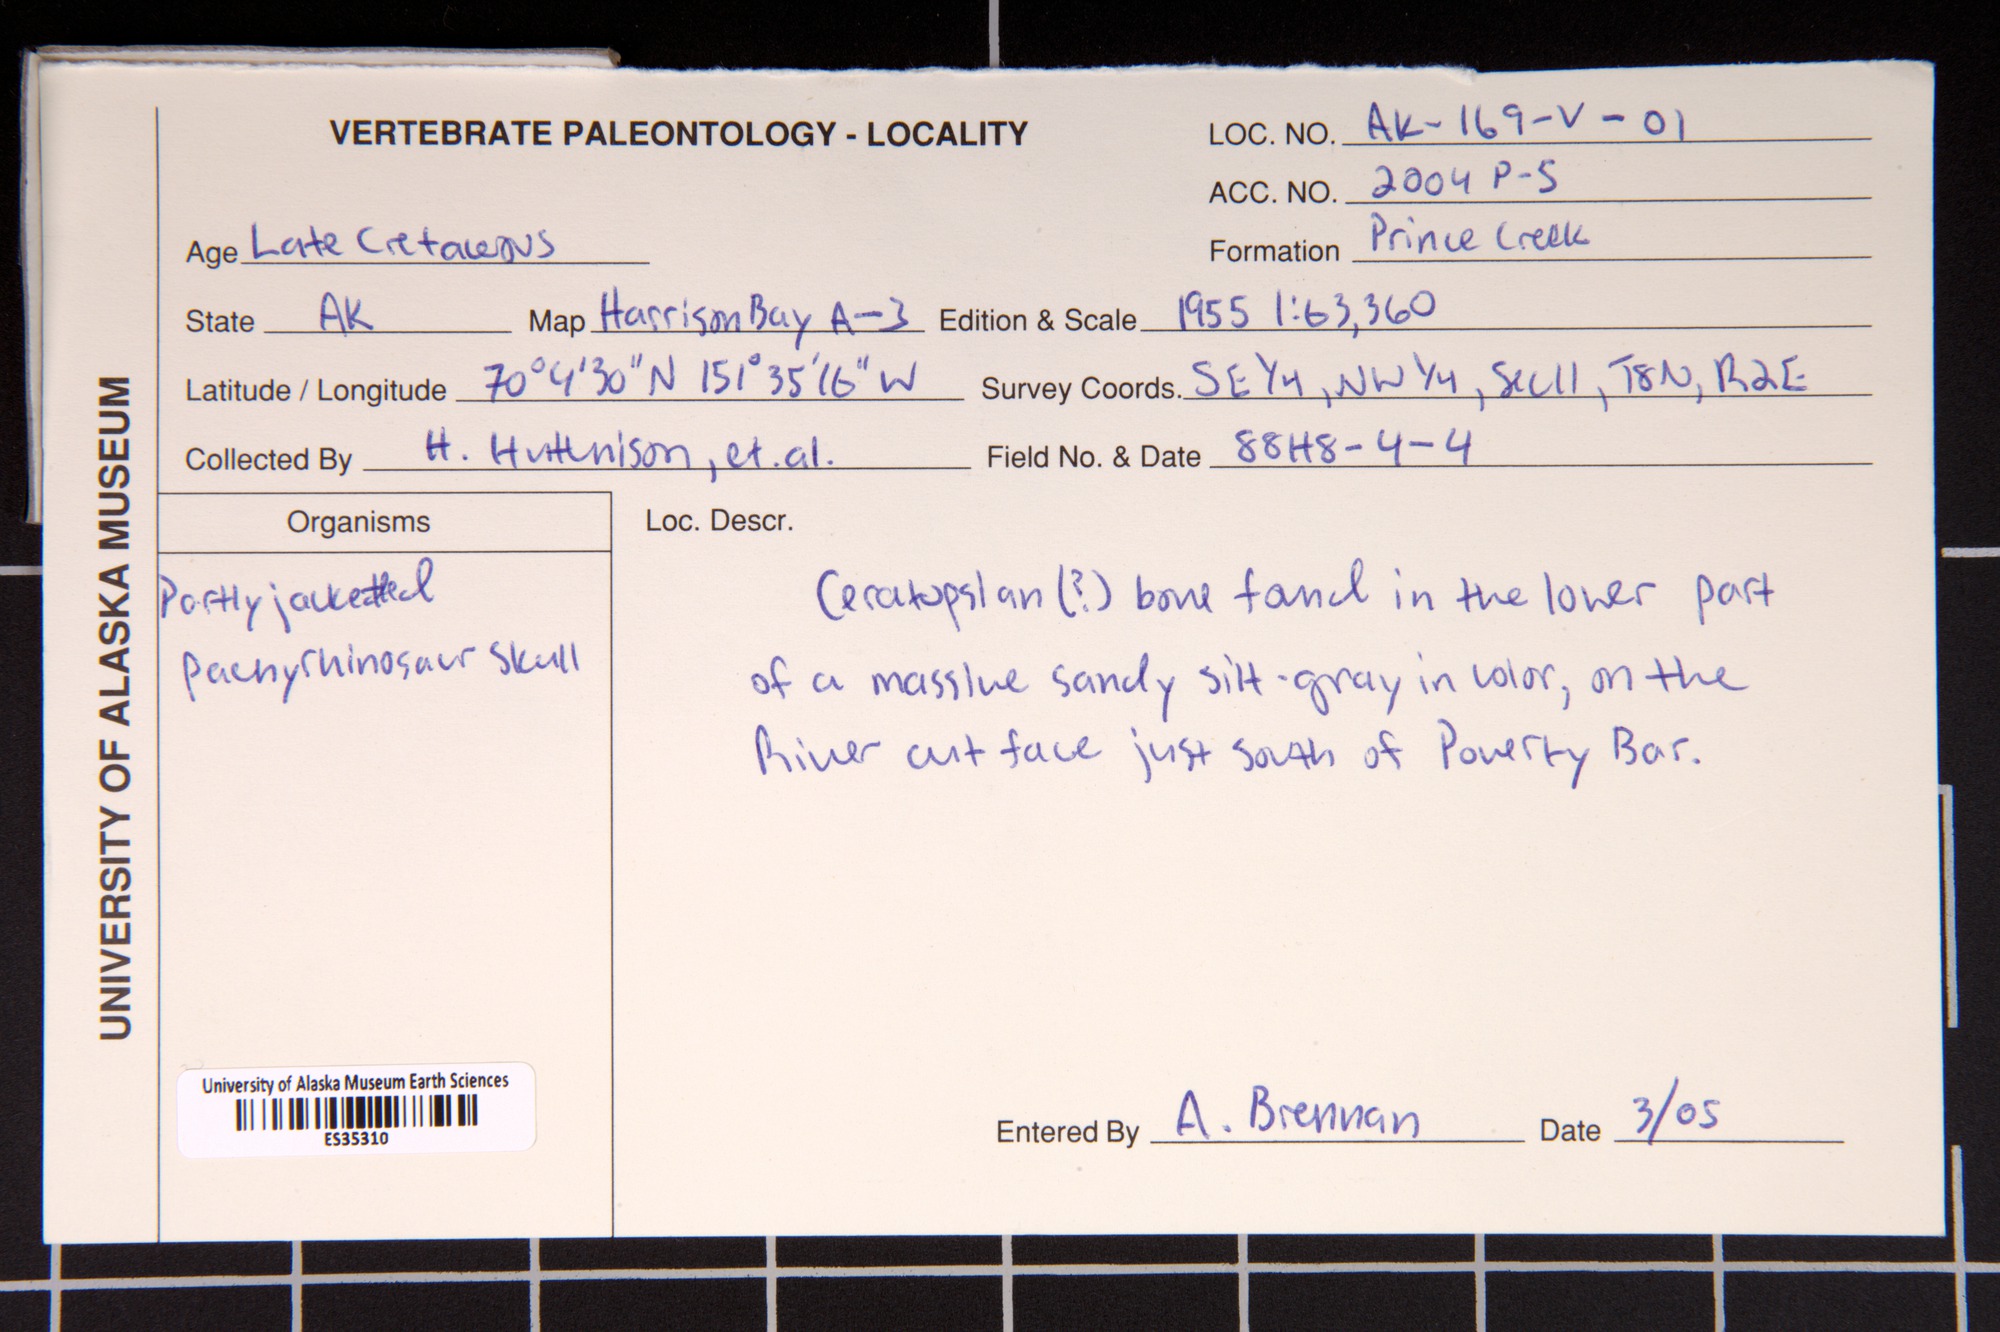 VERTEBRATE PALEONTOLOGY - LOCALITY
LOC. NO. AK-169-V-01
ACC. NO. 2004 P-5
Age Late Cretaceous
Formation Prince Creek
State AK Map Harrison Bay A-3 Edition & Scale 1955 1:63,360
Latitude / Longitude 70°4'30"N 151°35'16"W Survey Coords. SE 1/4, NW 1/4, Sec 11, T8N, R2E
Collected By H. Hutchison, et. al. Field No. & Date 88H8-4-4
Organisms
Partly jacketted
pachyrhinosaur skull
Loc. Descr.
Ceratopsian (?) bone found in the lower part
of a massive sandy silt-gray in color, on the
River cut face just south of Poverty Bar.
Entered By A. Brennan Date 3/05
UNIVERSITY OF ALASKA MUSEUM
University of Alaska Museum Earth Sciences
ES35310